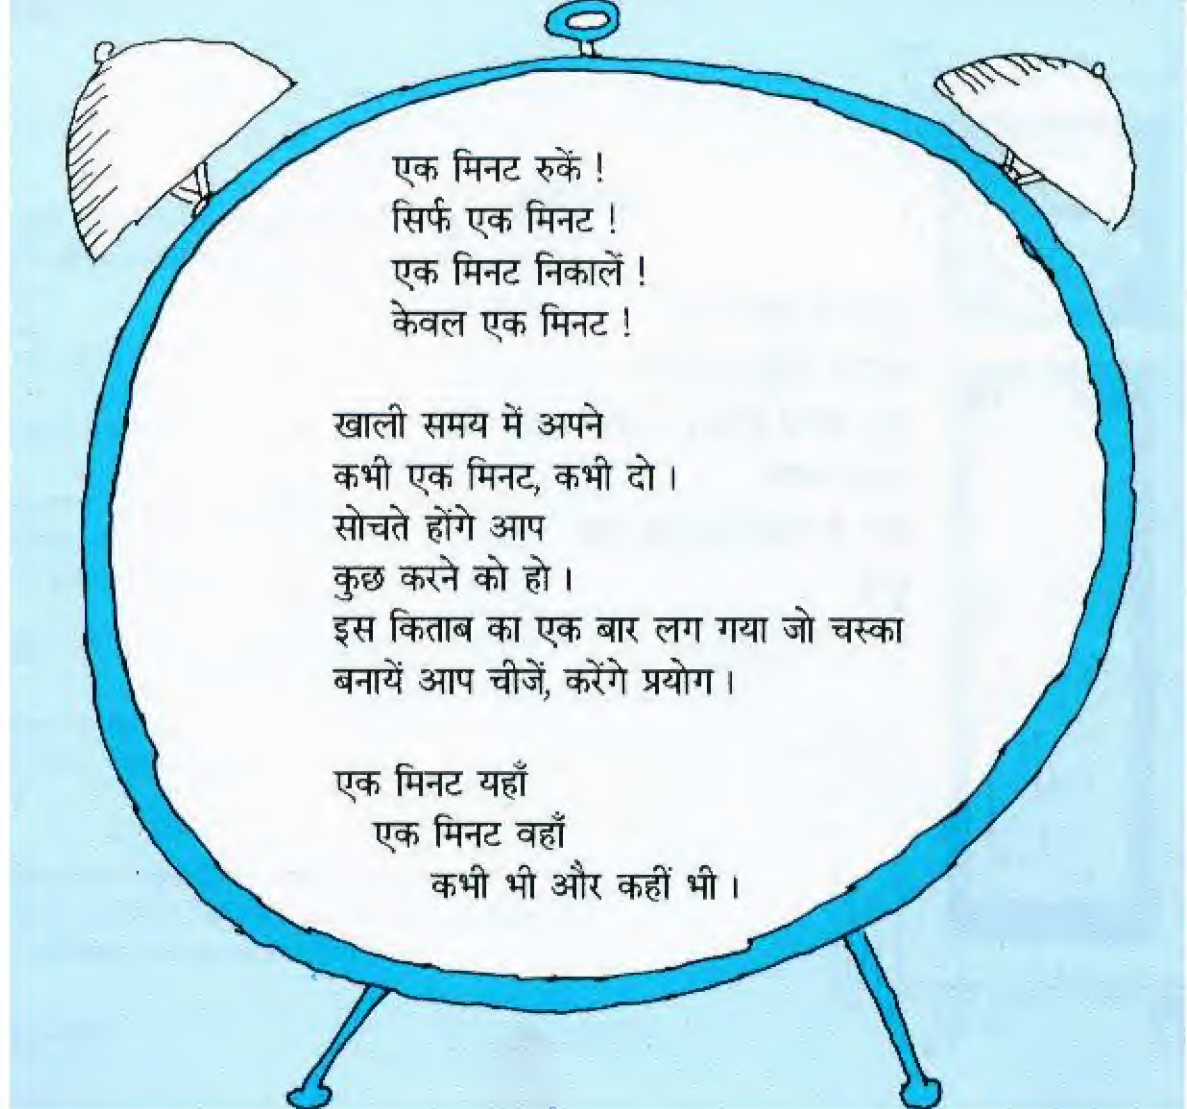 एक मिनट रुकें !
सिर्फ एक मिनट !
एक मिनट निकालें !
केवल एक मिनट !
खाली समय में अपने
कभी एक मिनट, कभी दो ।
सोचते होंगे आप
कुछ करने को हो ।
इस किताब का एक बार लग गया जो चस्का
बनायें आप चीजें, करेंगे प्रयोग ।
एक मिनट यहाँ
एक मिनट वहाँ
कभी भी और कहीं भी ।